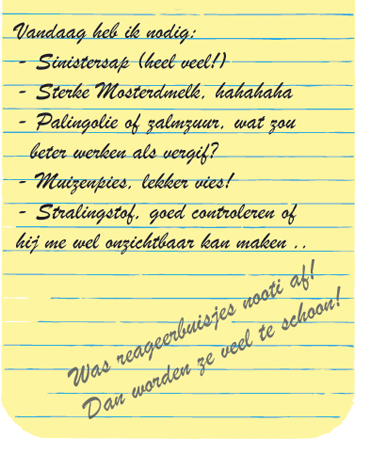 Vandaag heb ik nodig:
- Sinistersap (heel veel!)
- Sterke Mosterdmelk, hahahaha
- Palingolie of zalmzuur, wat zou
beter werken als vergif?
- Muizenpies, lekker vies!
- Stralingstof, goed controleren of
hij me wel onzichtbaar kan maken ..
Was reageerbuisjes nooti af!
Dan worden ze veel te schoon!